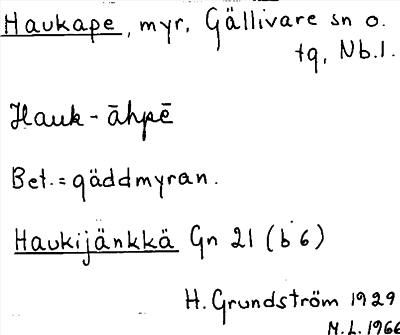 Haukape, myr, Gällivare sn o.
tg, Nb.l.
Hauk-āhpē
Bet.= gäddmyran.
Haukijänkkä Gn 21 (b 6)
H. Grundström 1929
M.L. 1966